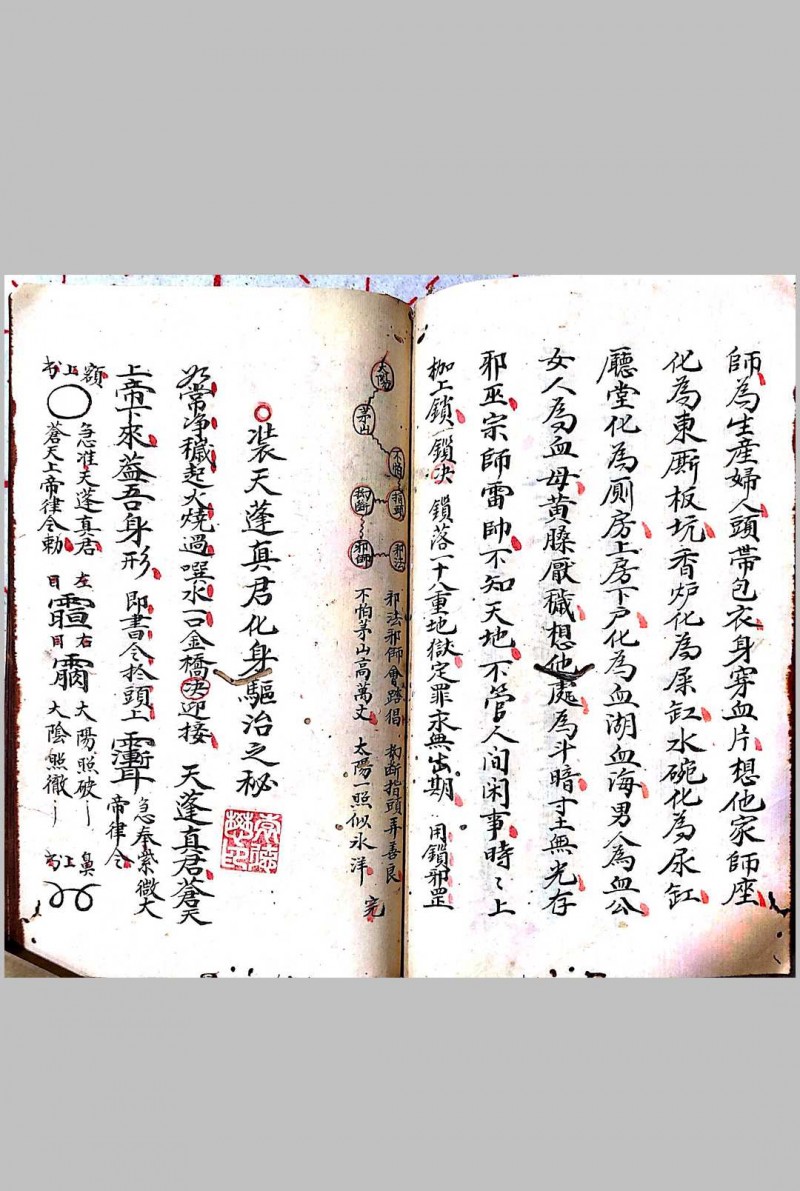 師為生產婦人頭帶包衣身穿血片想他家師座
化為東厮板坑香炉化為屎缸水碗化為尿缸
廳堂化為厠房上房下戶化為血湖血海男人為血公
女人為血母黃臊厭穢想他處為斗暗寸土無光存
邪巫宗師雷帥不知天地不管人间闲事時〻上
枷上鎖鎖决鎖落一十八重地獄定罪永無出期 用鎖邪罡
太陽
茅山
不怕
指頭
拗斷
邪師
邪法
邪法邪師會踏倡 拗断指頭弄善良
不怕茅山高萬丈 太陽一照似氷洋 完
裝天蓬真君化身驅治之秘
如常净穢起火燒過噀水一口金橋决迎接 天蓬真君蒼天
上帝下來葢吾身形 即書令扵頭上 急奉紫微大
帝律令
額上书
急准天蓬真君
蒼天上帝律令勅
左目
右目
太陽照破
太陰照徹
鼻上书